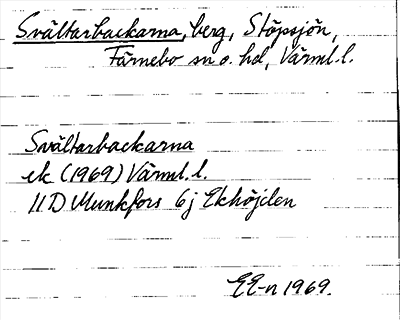 Svältarbackarna, berg, Stöpsjön,
Färnebo sn o. hd, Värml. l.
Svältarbackarna
ek (1969) Värml. l.
11D Munkfors 6j Ekhöjden
EE-n 1969.